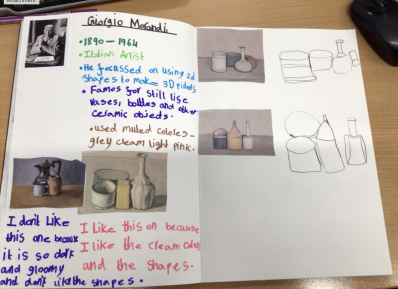 Giorgio Morandi
• 1890 - 1964
• Italian Artist
• He focussed on using 2d
shapes to make 3D
• Famos for still life
vases, bottles and other
ceramic objects.
• used muted colores -
grey cream light pink.
I don't like
this one because
it is so dark
and gloomy
and don't like the shapes.
I like this on because
I like the cream colors
and the shapes.